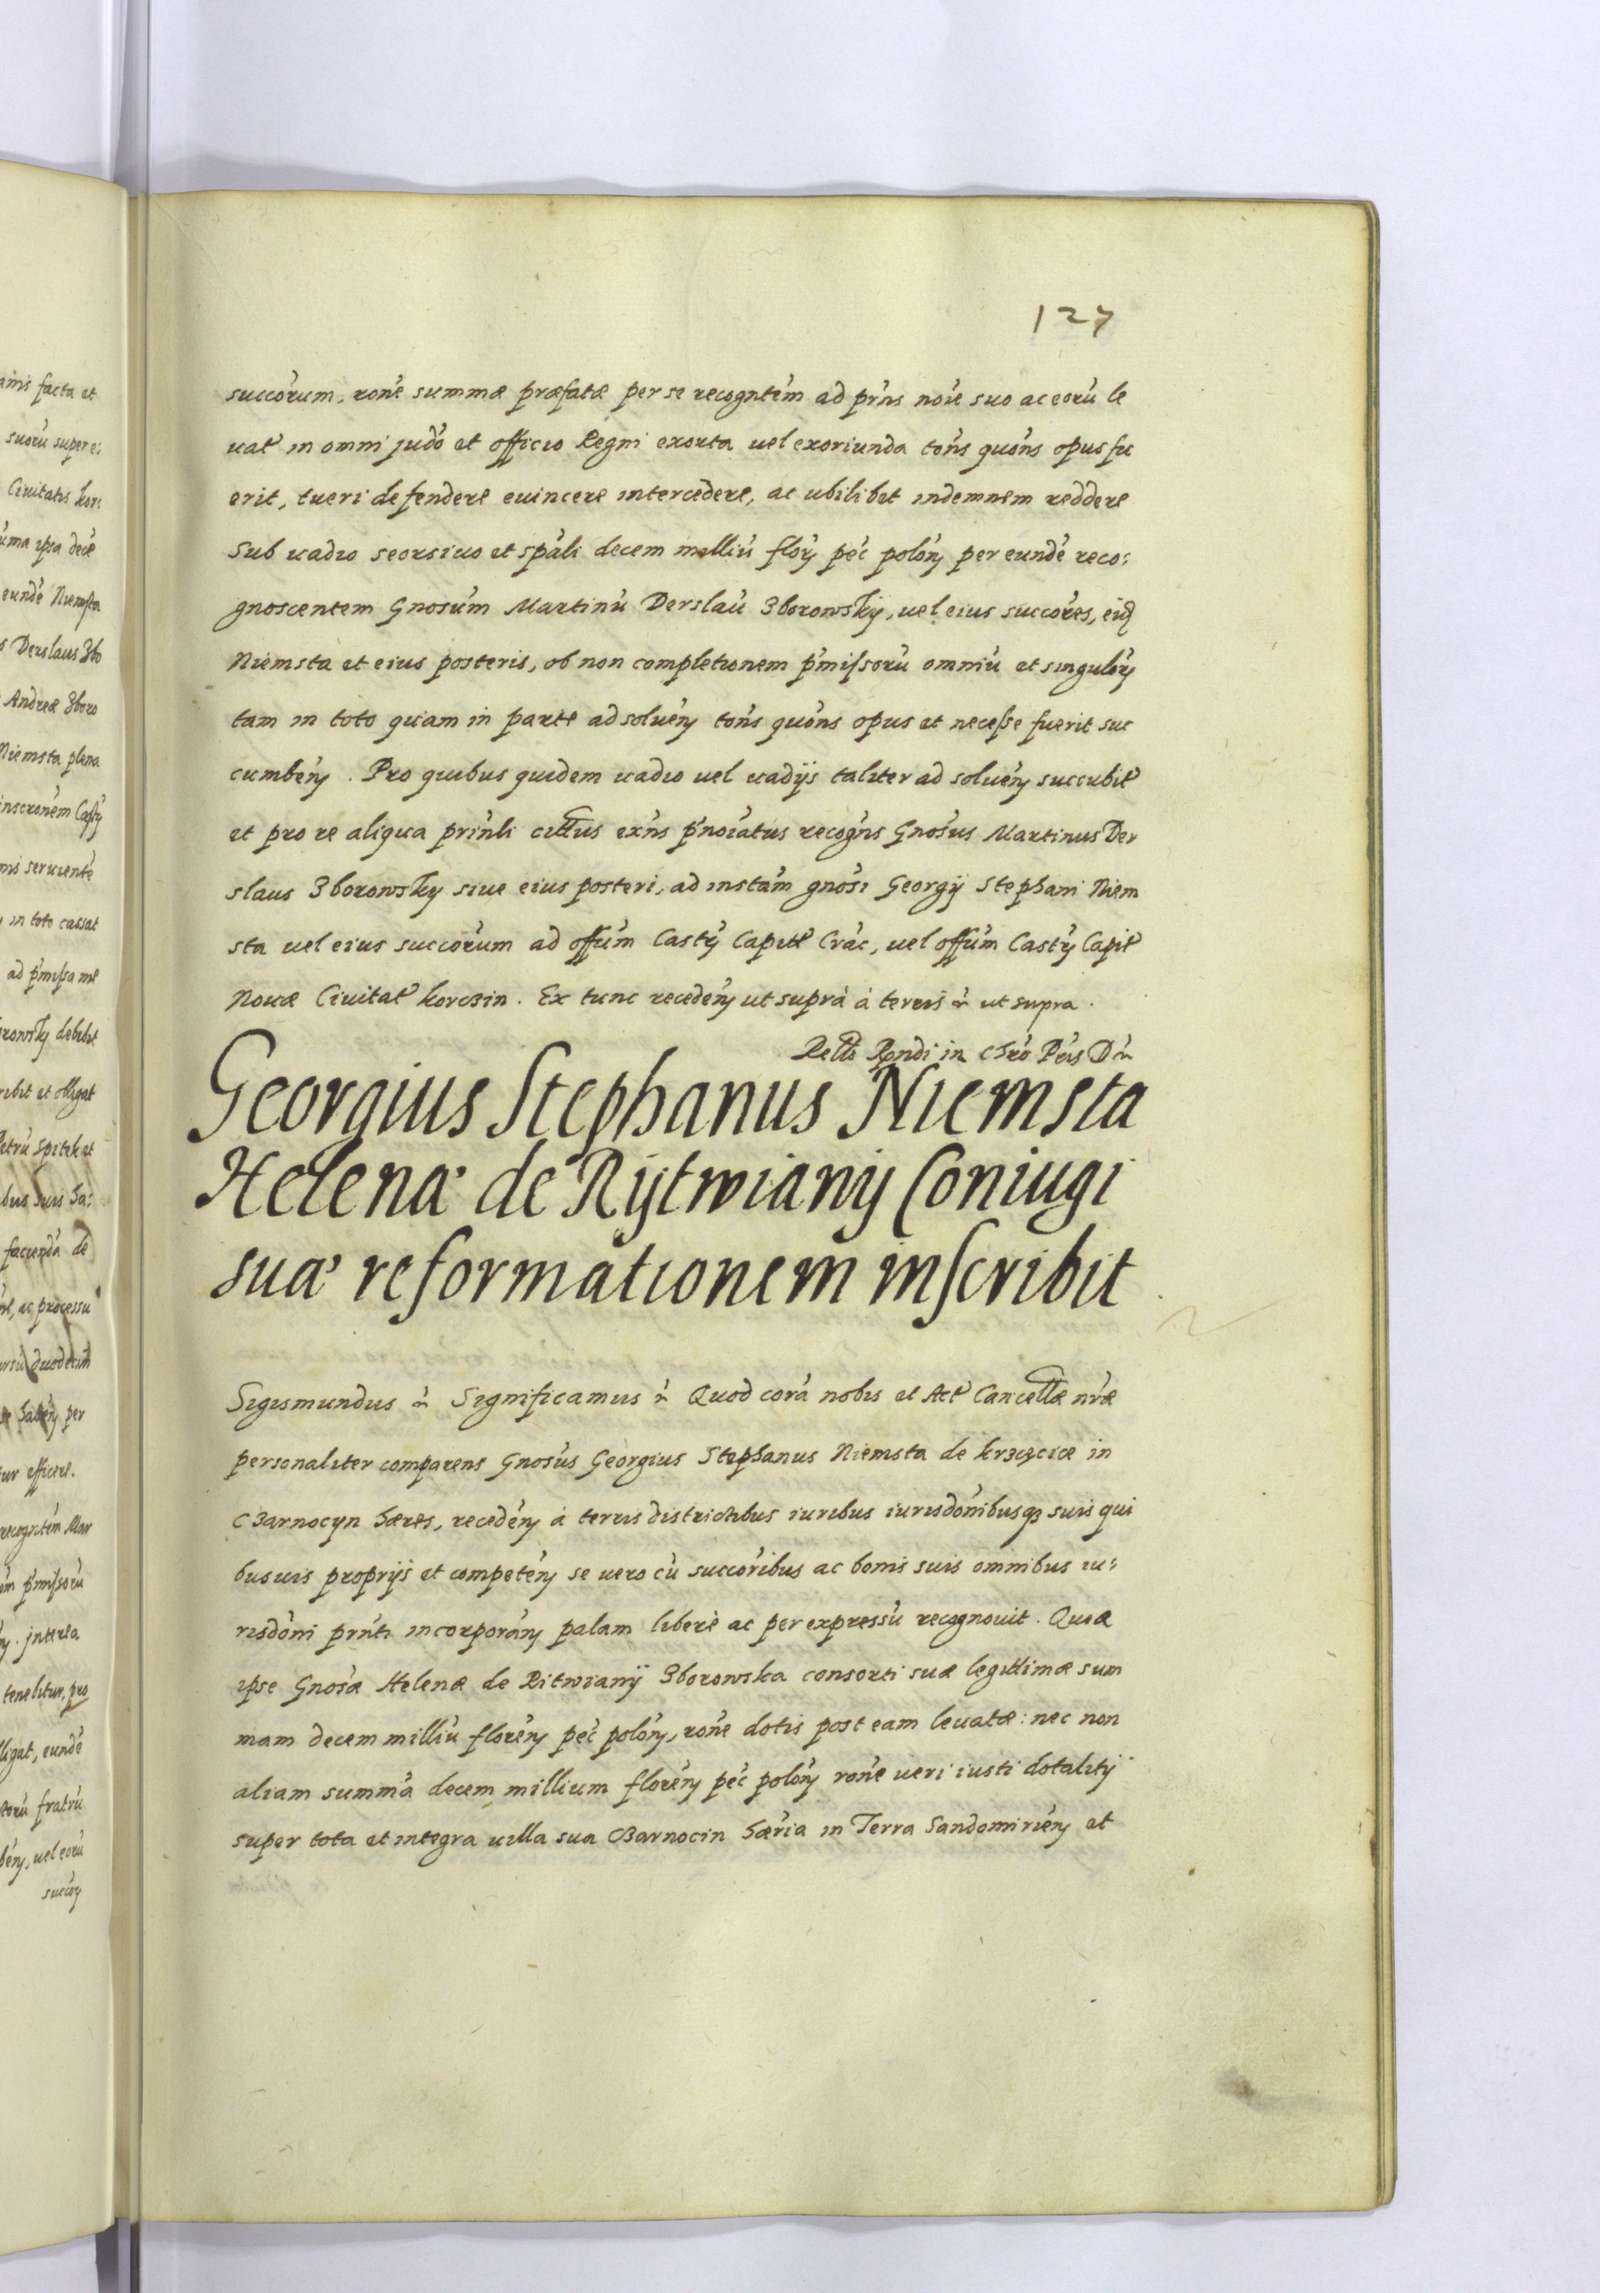 127
succor̃um, rone̓ summæ præfatæ per se recognte̓m ad pr̓ns no̓ie suo ac eorũ le
uat̓ in omni judo̓ et officio Regni exorta uel exoriunda to̓ns quo̓ns opus fu
erit, tueri defendere euincere intercedere, ac ubilibet indemnem reddere
Sub uadio seorsiuo et spa̓li decem milliũ flor̓ pec̓ polon̓ per eundẽ reco:
gnoscentem Gnosũm Martinũ Derslaũ Zborowskÿ, uel eius succor̃es, eidẽ
Niemsta et eius posteris, ob non completionem p̃missorũ omniũ et singulor̓
tam in toto quam in parte ad soluen̓ to̓ns quo̓ns opus et necesse fuerit suc
cumben̓. Pro quibus quidem uadio uel uadijs taliter ad soluen̓ succubit̓
et pro re aliqua prin̓li citt̃us exn̓s p̃no̓iatus recogn̓s Gnosũs Martinus Der
slaus Zborowsky siue eius posteri, ad insta̓m gnosĩ Georgij Stephani Niem
sta uel eius succor̃um ad offũm Castr̓ Capit̓ Crac̓, uel offũm Castr̓ Capit̓
Nouæ Ciuitat̓ korczin. Ex tunc receden̓ ut suprà à terris &c ut supra.
Rell̃o Rẽndi in Chr̃o Pr̃is D &c
Georgius Stephanus Niemsta
Helenæ de Rÿtwianÿ Coniugi
suæ reformationem inscribit
Sigismundus &c Significamus &c Quod corã nobis et Act̓ Cancell̃æ nr̃æ
personaliter comparens Gnosũs Georgius Stephanus Niemsta de krzczięcicæ in
Czarnocyn hæres, receden̓ à terris districtibus iuribus iurisdo̓nibusq3 suis qui
busuis proprijs et competen̓ se uero cũ succor̃ibus ac bonis suis omnibus iu:
risdo̓ni prn̓ti incorporan̓ palam liberè ac per expressũ recognouit. Quia
ipse Gnosæ̃ Helenæ de Ritwianÿ Zborowska consorti suæ legittimæ sum
mam decem milliũ floren̓ pec̓ polon̓, rone̓ dotis post eam leuatæ: nec non
aliam summã decem millium floren̓ pec̓ polon̓ rone̓ ueri iusti dotalitÿ
super tota et integra uilla sua Czarnocin hær̃ia in Terra Sandomirien̓ et